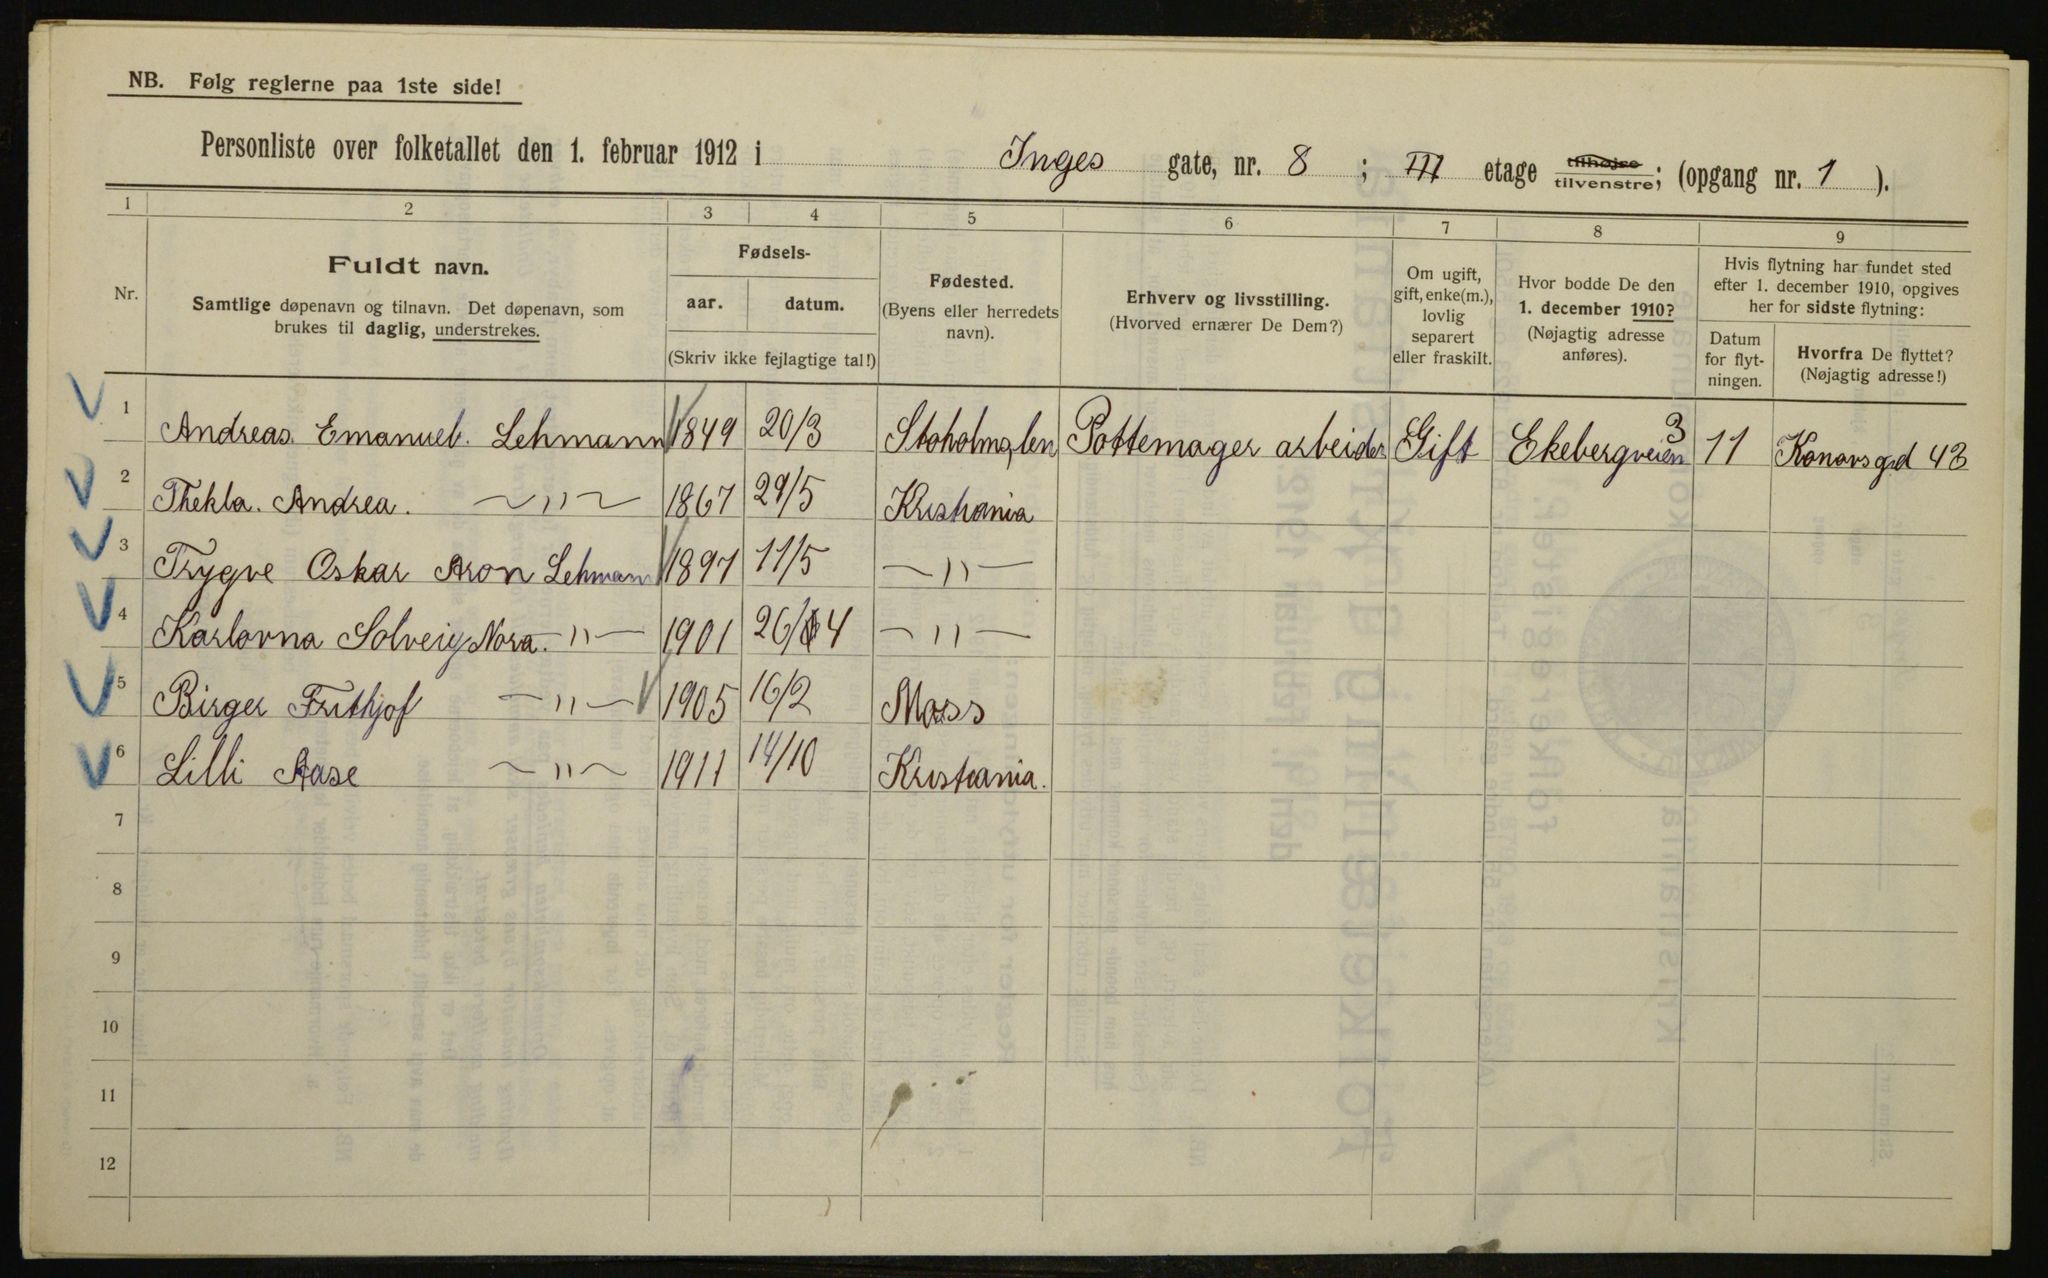 NB. Følg reglerne paa 1ste side!
Personliste over folketallet den 1. februar 1912 i Inges gate, nr. 8 ; III etage tilhøjre tilvenstre; (opgang nr. 1 ).
1 2 3 4 5 6 7 8 9
Nr.
Fuldt navn.
Samtlige døpenavn og tilnavn. Det døpenavn, som
brukes til daglig, understrekes.
Fødsels-
aar. datum.
(Skriv ikke fejlagtige tal!)
Fødested.
(Byens eller herredets
navn).
Erhverv og livsstilling.
(Hvorved ernærer De Dem?)
Om ugift,
gift, enke(m.),
lovlig
separert
eller fraskilt.
Hvor bodde De den
1. december 1910?
(Nøjagtig adresse
anføres).
Hvis flytning har fundet sted
efter 1. december 1910, opgives
her for sidste flytning:
Datum
for flyt-
ningen.
Hvorfra De flyttet?
(Nøjagtig adresse!)
1 Andreas. Emanuel. Lehmann 1849 20/3 Stoholms,len Pottemager arbeider Gift Ekebergveien 3 11 43
2 Thekla. Andrea. — " — 1867 29/5 Kristiania
3 Trygve Oskar Aron Lehmann 1897 11/5 — " —
4 Karlovna Solveig Nora. — " — 1901 26/4 — " —
5 Birger Frithjof — " — 1905 16/2 Moss
6 Lilli Aase — " — 1911 14/10 Kristiania.
7
8
9
10
11
12